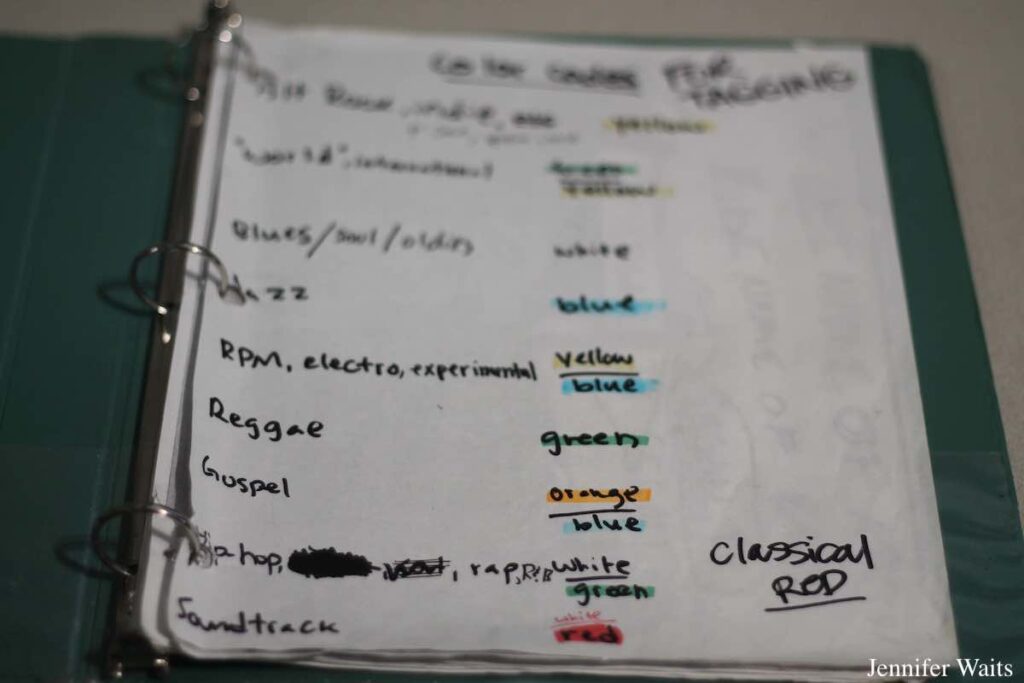 Color Codes FOR TAGGING
Alt Rock, indie, yellow
"world", international green
yellow
Blues/soul/oldies white
Jazz blue
RPM, electro, experimental yellow
blue
Reggae green
Gospel orange
blue
hop, rap, R&B white
green
Soundtrack white
red
Classical
RED
Jennifer Waits